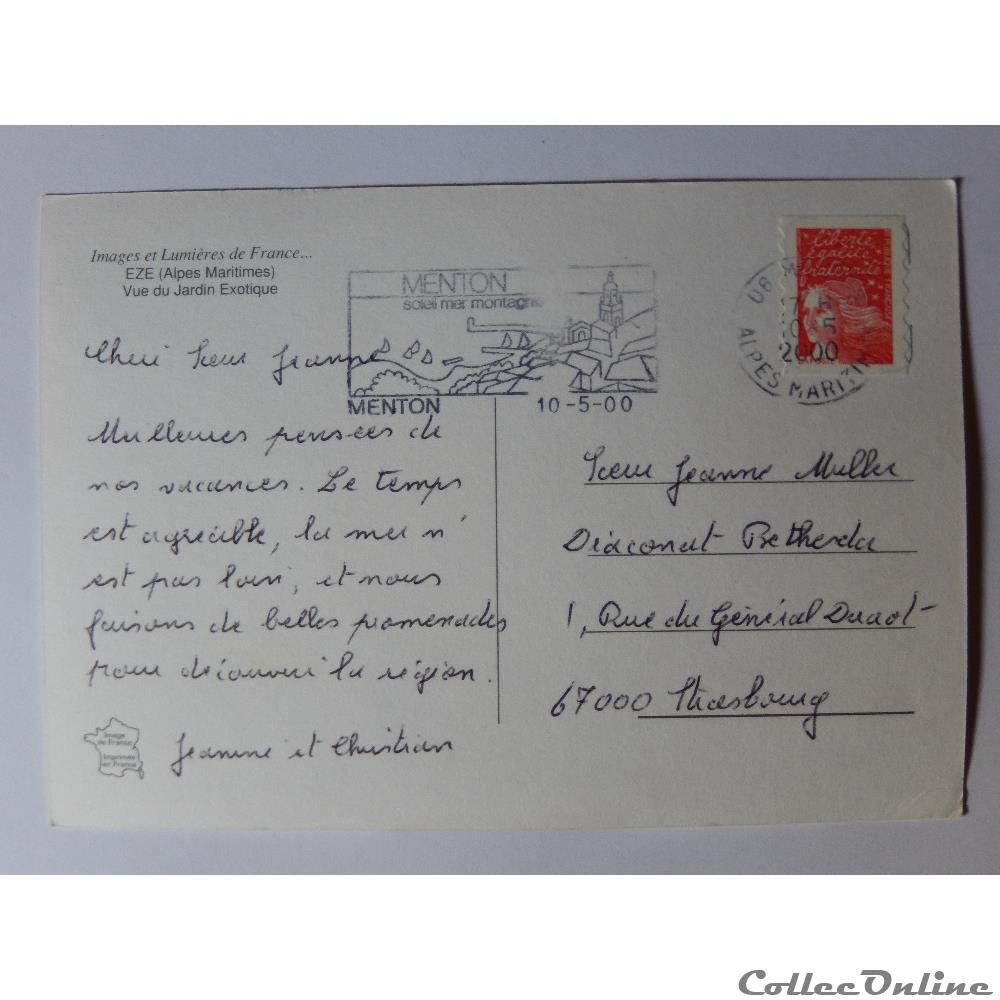 Images et Lumières de France...
EZE (Alpes Maritimes)
Vue du Jardin Exotique
MENTON
soleil mer montagne
MENTON
10-5-00
06 M
17 H
10-5
2000
ALPES MARITIM
liberté
égalité
fraternité
Cheri Sœur Jeanne
Meilleures pensées de
nos vacances. Le temps
est agréable, la mer n'
est pas loin, et nous
faisons de belles promenades
pour découvrir la région.
Jeanine et Christian
Image
de France
Imprimée
en France
Sœur Jeanne Muller
Diaconat Bethesda
1, Rue du Général Ducrot
67000 Strasbourg
CollecOnline